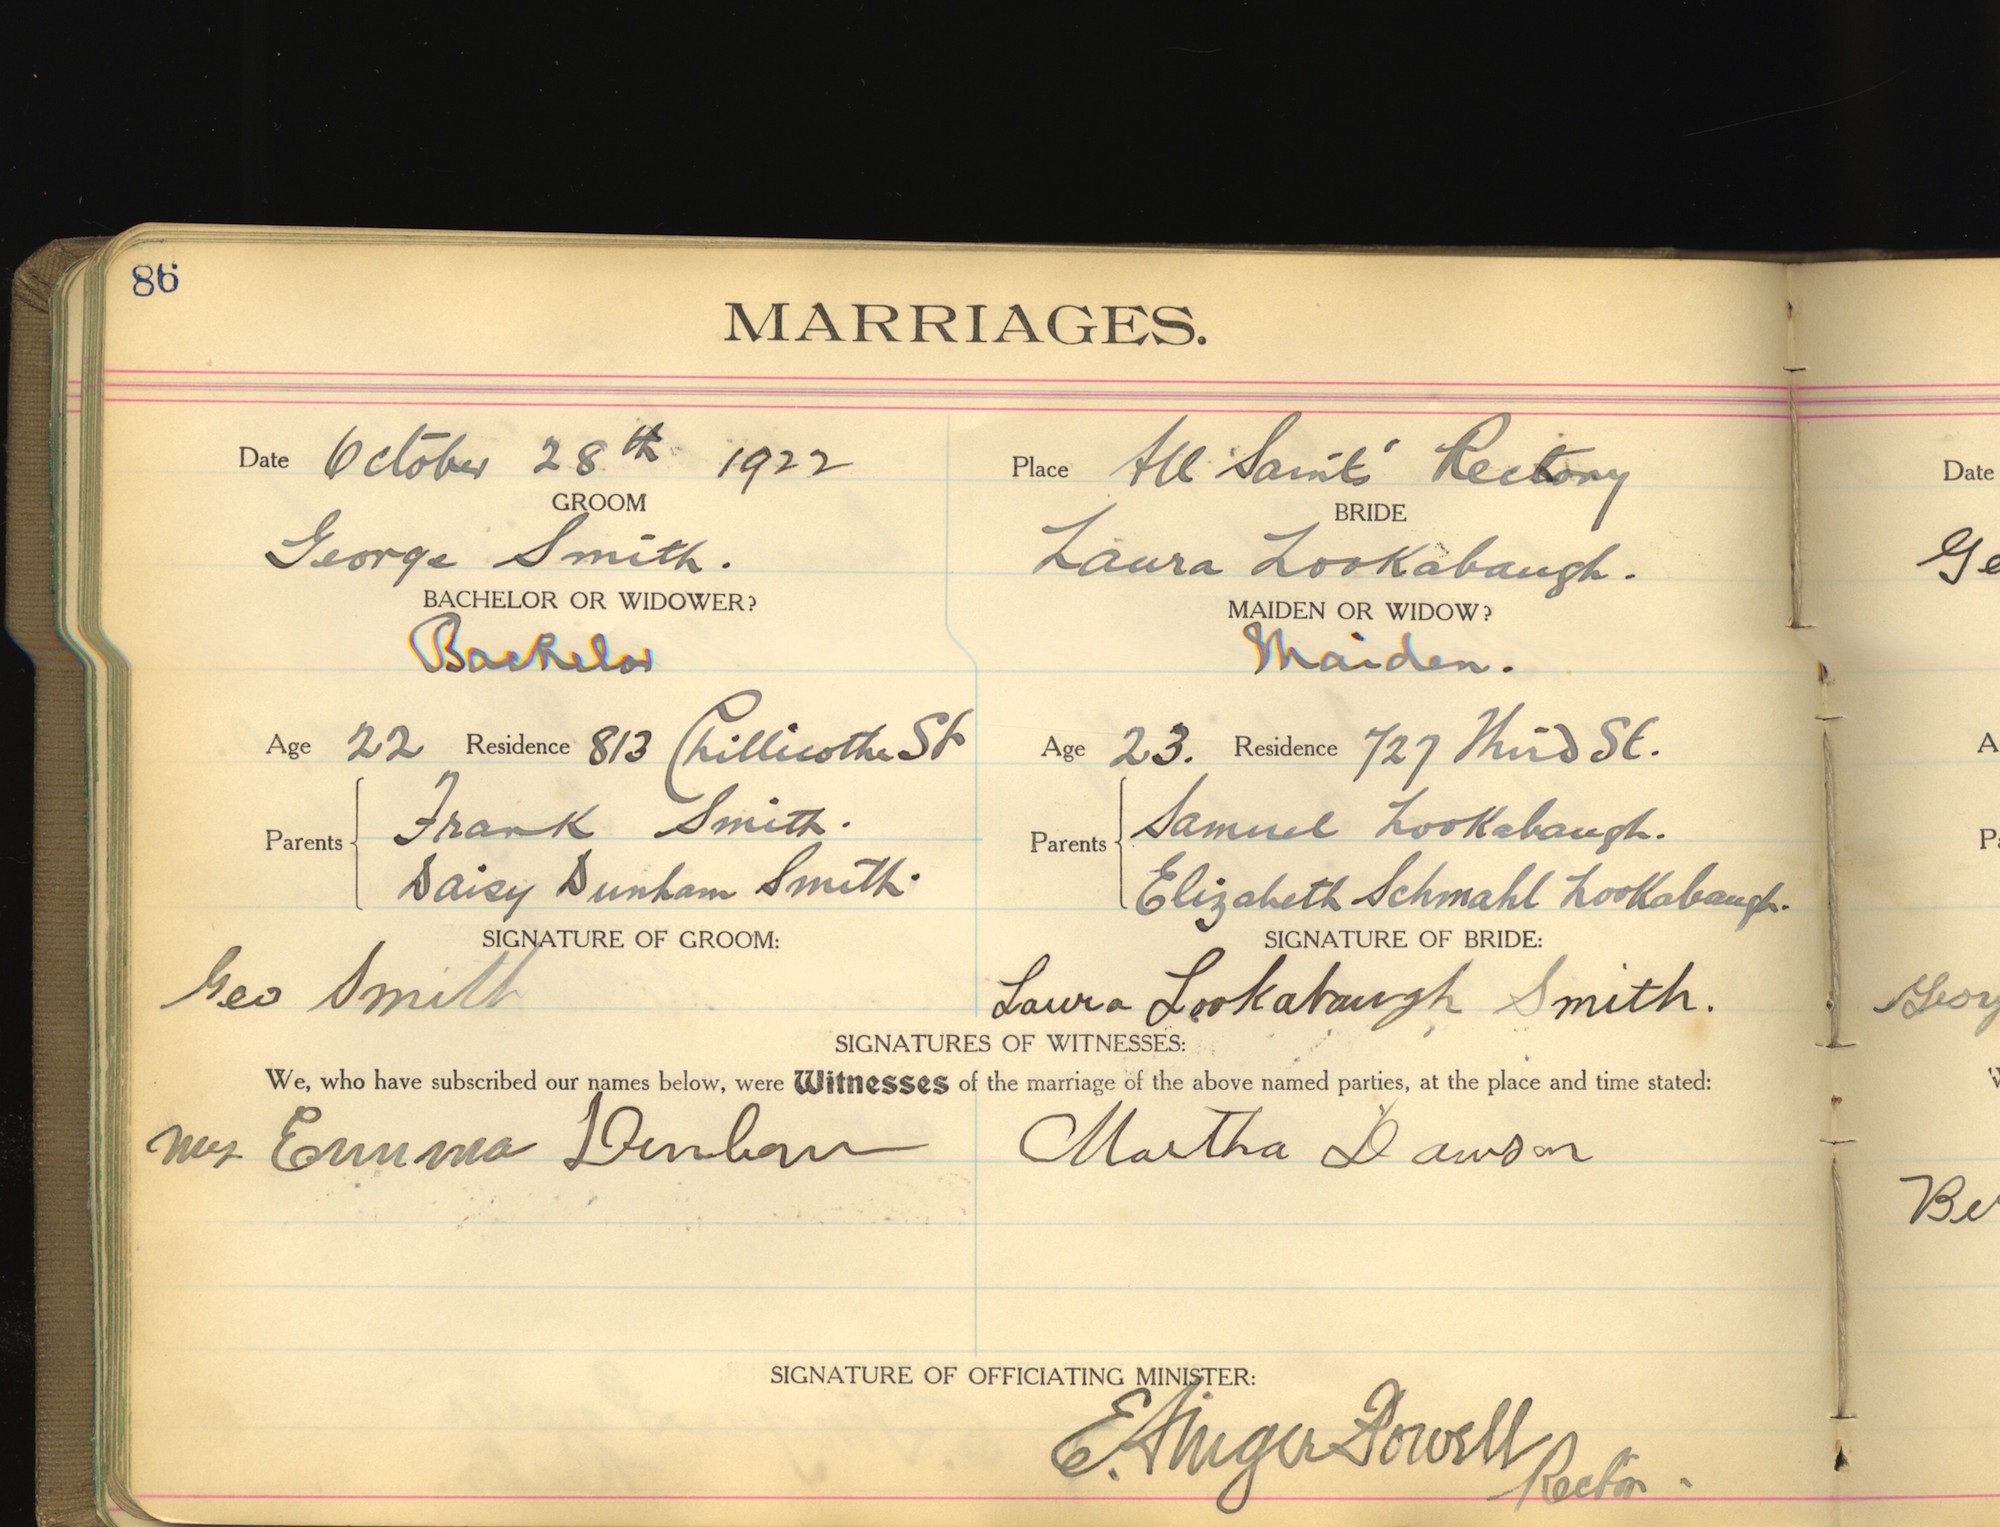 86
MARRIAGES.
Date October 28th 1922 Place All Saints' Rectory
GROOM BRIDE
George Smith. Laura Lookabaugh.
BACHELOR OR WIDOWER? MAIDEN OR WIDOW?
Bachelor Maiden.
Age 22 Residence 813 Chillicothe St Age 23. Residence 727 Third St.
Parents Frank Smith. Parents Samuel Lookabaugh.
Daisy Dunham Smith. Elizabeth Schmahl Lookabaugh.
SIGNATURE OF GROOM: SIGNATURE OF BRIDE:
Geo Smith Laura Lookabaugh Smith.
SIGNATURES OF WITNESSES:
We, who have subscribed our names below, were Witnesses of the marriage of the above named parties, at the place and time stated:
Mrs Emma Dunham Martha Dawson
SIGNATURE OF OFFICIATING MINISTER:
E. Ainger Powell
Rector.
Date
Ge
A
Pa
Geor
W
Be